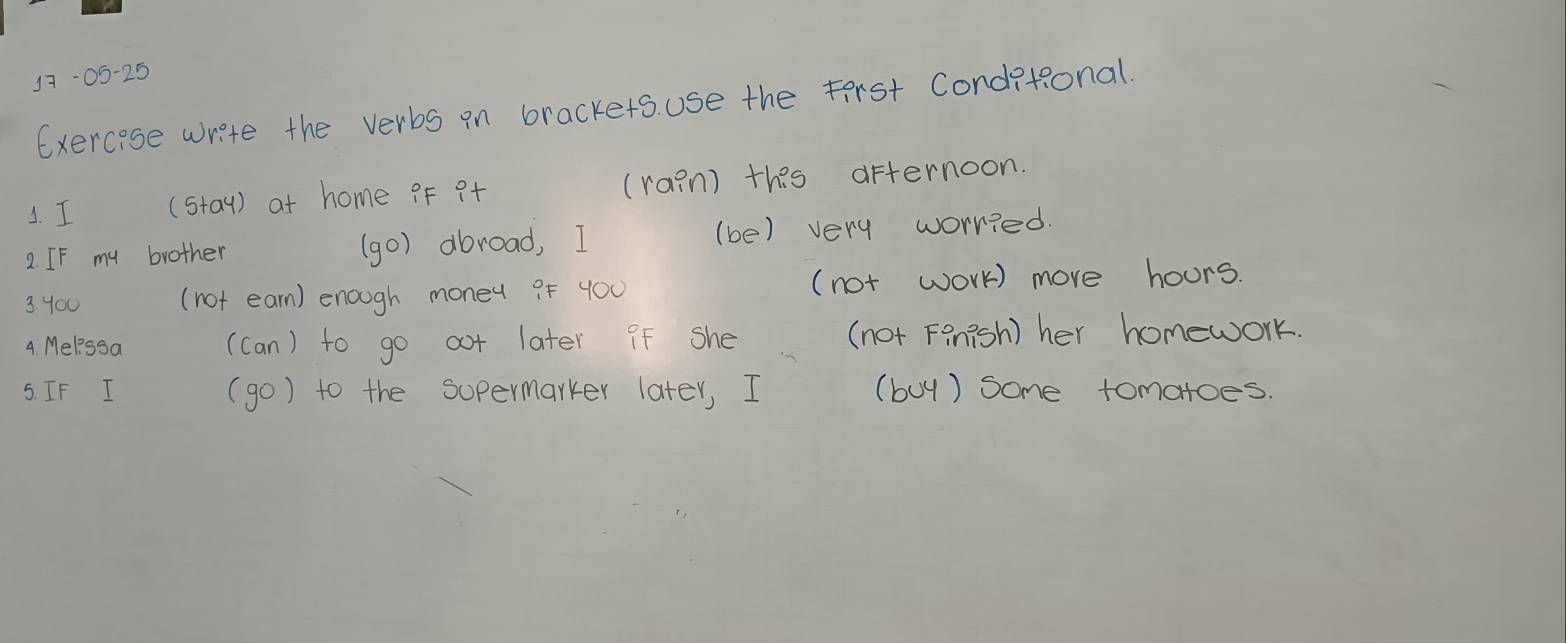 17-05-25
Exercise write the verbs in brackets. use the First Conditional.
1. I (stay) at home if it (rain) this afternoon.
2. IF my brother (go) abroad, I (be) very worried.
3. you (not earn) enough money if you (not work) more hours.
4. Melissa (can) to go oot later if she (not Finish) her homework.
5. IF I (go) to the supermarker later, I (buy) some tomatoes.